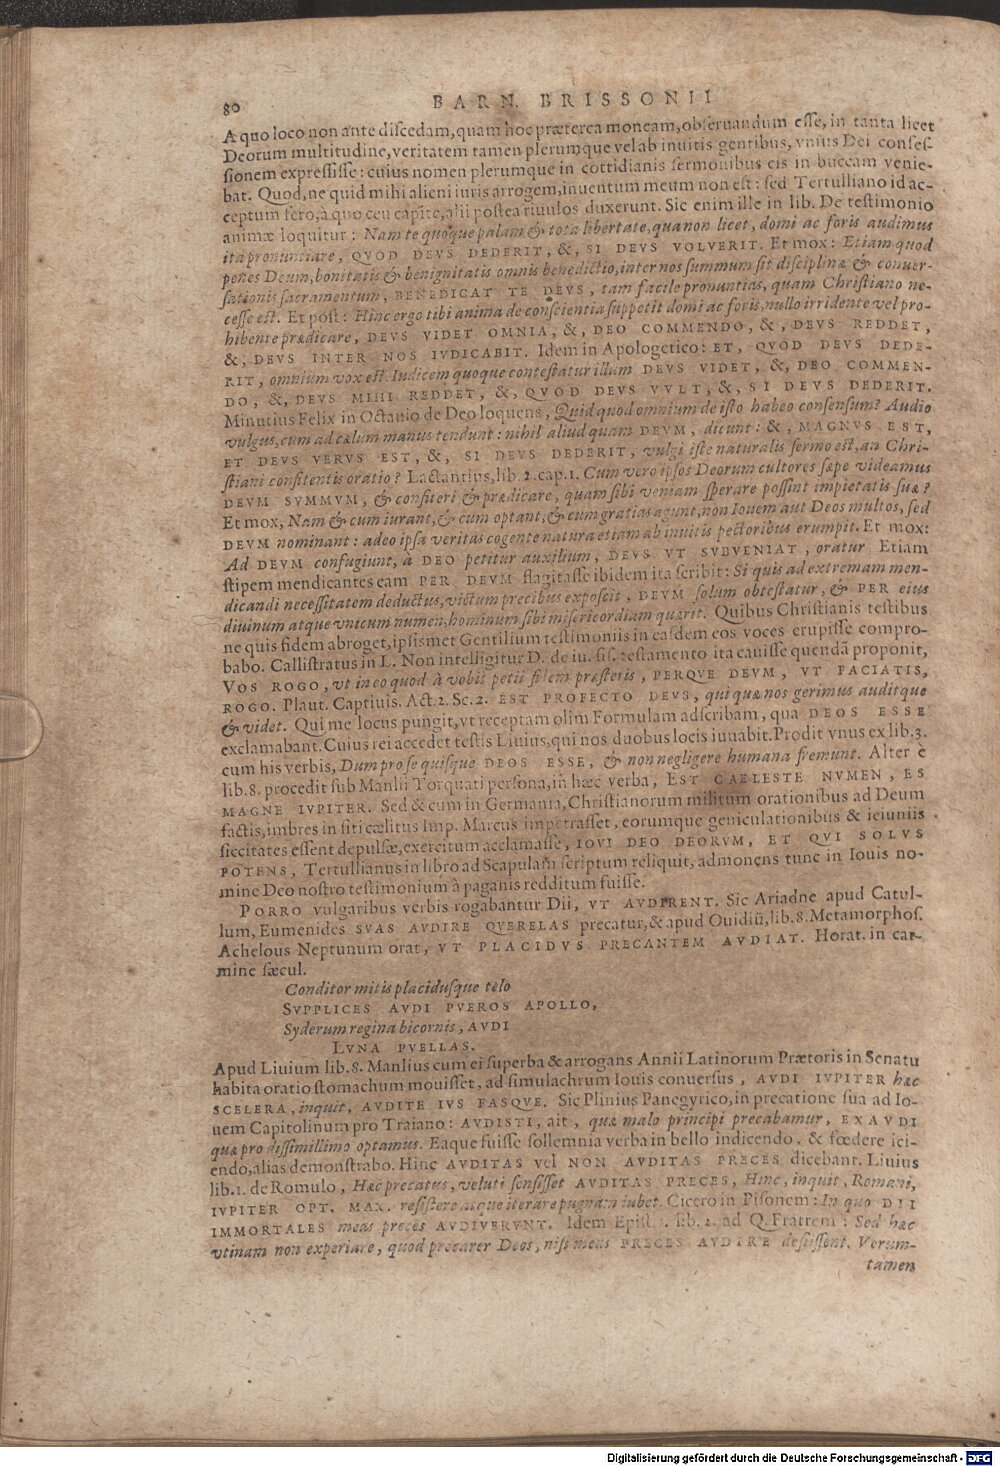 80 BARN. BRISSONII
A quo loco non ante discedam, quam hoc præterea moneam, obseruandum esse, in tanta licet
Deorum multitudine, veritatem tamen plerumque vel ab inuitis gentibus, vnius Dei confes-
sionem expressisse: cuius nomen plerumque in cottidianis sermonibus eis in buccam venie-
bat. Quod, ne quid mihi alieni iuris arrogem, inuentum meum non est: sed Tertulliano id ac-
ceptum fero, à quo ceu capite, alij postea riuulos duxerunt. Sic enim ille in lib. De testimonio
animæ loquitur: Nam te quoque palam & tota libertate, qua non licet, domi ac foris audimus
ita pronuntiare, QVOD DEVS DEDERIT, &, SI DEVS VOLVERIT. Et mox: Etiam quod
penes Deum, bonitatis & benignitatis omnis benedictio, inter nos summum sit disciplinæ & conuer-
sationis sacramentum, BENEDICAT TE DEVS, tam facile pronuntias, quam Christiano ne-
cesse est. Et post: Hinc ergo tibi anima de conscientia suppetit domi ac foris, nullo irridente vel pro-
hibente prædicare, DEVS VIDET OMNIA, &, DEO COMMENDO, &, DEVS REDDET,
&, DEVS INTER NOS IVDICABIT. Idem in Apologetico: ET, QVOD DEVS DEDE-
RIT, omnium vox est. Iudicem quoque contestatur illum DEVS VIDET, &, DEO COMMEN-
DO, &, DEVS MIHI REDDET, &, QVOD DEVS VVLT, &, SI DEVS DEDERIT.
Minutius Felix in Octauio de Deo loquens, Quid quod omnium de isto habeo consensum? Audio
vulgus, cum ad cælum manus tendunt: nihil aliud quam DEVM, dicunt: &, MAGNVS EST,
ET DEVS VERVS EST, &, SI DEVS DEDERIT, vulgi iste naturalis sermo est, an Chri-
stiani confitentis oratio? Lactantius, lib. 2. cap. 1. Cum vero ipsos Deorum cultores sæpe videamus
DEVM SVMMVM, & confiteri & prædicare, quam sibi veniam sperare possint impietatis suæ?
Et mox, Nam & cum iurant, & cum optant, & cum gratias agunt, non Iouem aut Deos multos, sed
DEVM nominant: adeo ipsa veritas cogente natura etiam ab inuitis pectoribus erumpit. Et mox:
Ad DEVM confugiunt, à DEO petitur auxilium, DEVS VT SVBVENIAT, oratur Etiam
stipem mendicantes eam PER DEVM flagitasse ibidem ita scribit: Si quis ad extremam men-
dicandi necessitatem deductus, victum precibus exposcit, DEVM solum obtestatur, & PER eius
diuinum atque vnicum numen, hominum sibi misericordiam quærit. Quibus Christianis testibus
ne quis fidem abroget, ipsismet Gentilium testimoniis in easdem eos voces erupisse compro-
babo. Callistratus in L. Non intelligitur D. de iu. fis. testamento ita cauisse quendā proponit,
VOS ROGO, vt in eo quod à vobis petii fidem præstetis, PERQVE DEVM, VT FACIATIS,
ROGO. Plaut. Captiuis. Act. 2. Sc. 2. EST PROFECTO DEVS, qui quæ nos gerimus auditque
& videt. Qui me locus pungit, vt receptam olim Formulam adscribam, qua DEOS ESSE
exclamabant. Cuius rei accedet testis Liuius, qui nos duobus locis iuuabit. Prodit vnus ex lib. 3.
cum his verbis, Dum pro se quisque DEOS ESSE, & non negligere humana fremunt. Alter è
lib. 8. procedit sub Manlii Torquati persona, in hæc verba, EST CAELESTE NVMEN, ES
MAGNE IVPITER. Sed & cum in Germania, Christianorum militum orationibus ad Deum
factis, imbres in siti cælitus Imp. Marcus impetrasset, eorumque geniculationibus & ieiuniis
siccitates essent depulsæ, exercitum acclamasse, IOVI DEO DEORVM, ET QVI SOLVS
POTENS, Tertullianus in libro ad Scapulam scriptum reliquit, admonens tunc in Iouis no-
mine Deo nostro testimonium à paganis redditum fuisse.
PORRO vulgaribus verbis rogabantur Dii, VT AVDIRENT. Sic Ariadne apud Catul-
lum, Eumenides SVAS AVDIRE QVERELAS precatur, & apud Ouidiū, lib. 8. Metamorphos.
Achelous Neptunum orat, VT PLACIDVS PRECANTEM AVDIAT. Horat. in car-
mine sæcul.
Conditor mitis placidusque telo
SVPPLICES AVDI PVEROS APOLLO,
Syderum regina bicornis, AVDI
LVNA PVELLAS.
Apud Liuium lib. 8. Manlius cum ei superba & arrogans Annii Latinorum Prætoris in Senatu
habita oratio stomachum mouisset, ad simulachrum Iouis conuersus, AVDI IVPITER hæc
SCELERA, inquit, AVDITE IVS FASQVE. Sic Plinius Panegyrico, in precatione sua ad Io-
uem Capitolinum pro Traiano: AVDISTI, ait, quæ malo principi precabamur, EXAVDI
quæ pro dissimillimo optamus. Eaque fuisse sollemnia verba in bello indicendo, & fœdere ici-
endo, alias demonstrabo. Hinc AVDITAS vel NON AVDITAS PRECES dicebant. Liuius
lib. 1. de Romulo, Hæc precatus, veluti sensisset AVDITAS PRECES, Hinc, inquit, Romani,
IVPITER OPT. MAX. resistere atque iterare pugnam iubet. Cicero in Pisonem: In quo DII
IMMORTALES meas preces AVDIVERVNT. Idem Epist. 3. lib. 2. ad Q. Fratrem: Sed hæc
vtinam non experiare, quod precarer Deos, nisi meas PRECES AVDIRE desiissent. Verum-
tamen
Digitalisierung gefördert durch die Deutsche Forschungsgemeinschaft - DFG